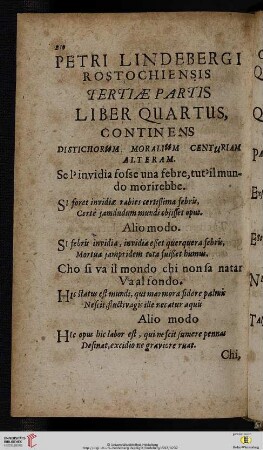 PETRI LINDEBERGI
ROSTOCHIENSIS
TERTIÆ PARTIS
LIBER QUARTUS,
CONTINENS
DISTICHORUM MORALIUM CENTURIAM
ALTERAM.
Se l' invidia fosse una febre, tut' il mun-
do morirebbe.
SI foret invidiæ rabies certissima febris,
Certè jamdudum mundi objisset opus.
Alio modo.
SI febris invidia, invidia esset querquera febris,
Mortua jampridem tuta fuisset humus.
Cho si va il mondo chi non sa natar
Va al fondo.
HIc status est mundi, qui marmora findere palmis
Nescit, is
Alio modo
HIc opus hic labor est, qui nescit jungere pennas
Desinat, excidio ne graviore ruat.
Chi,